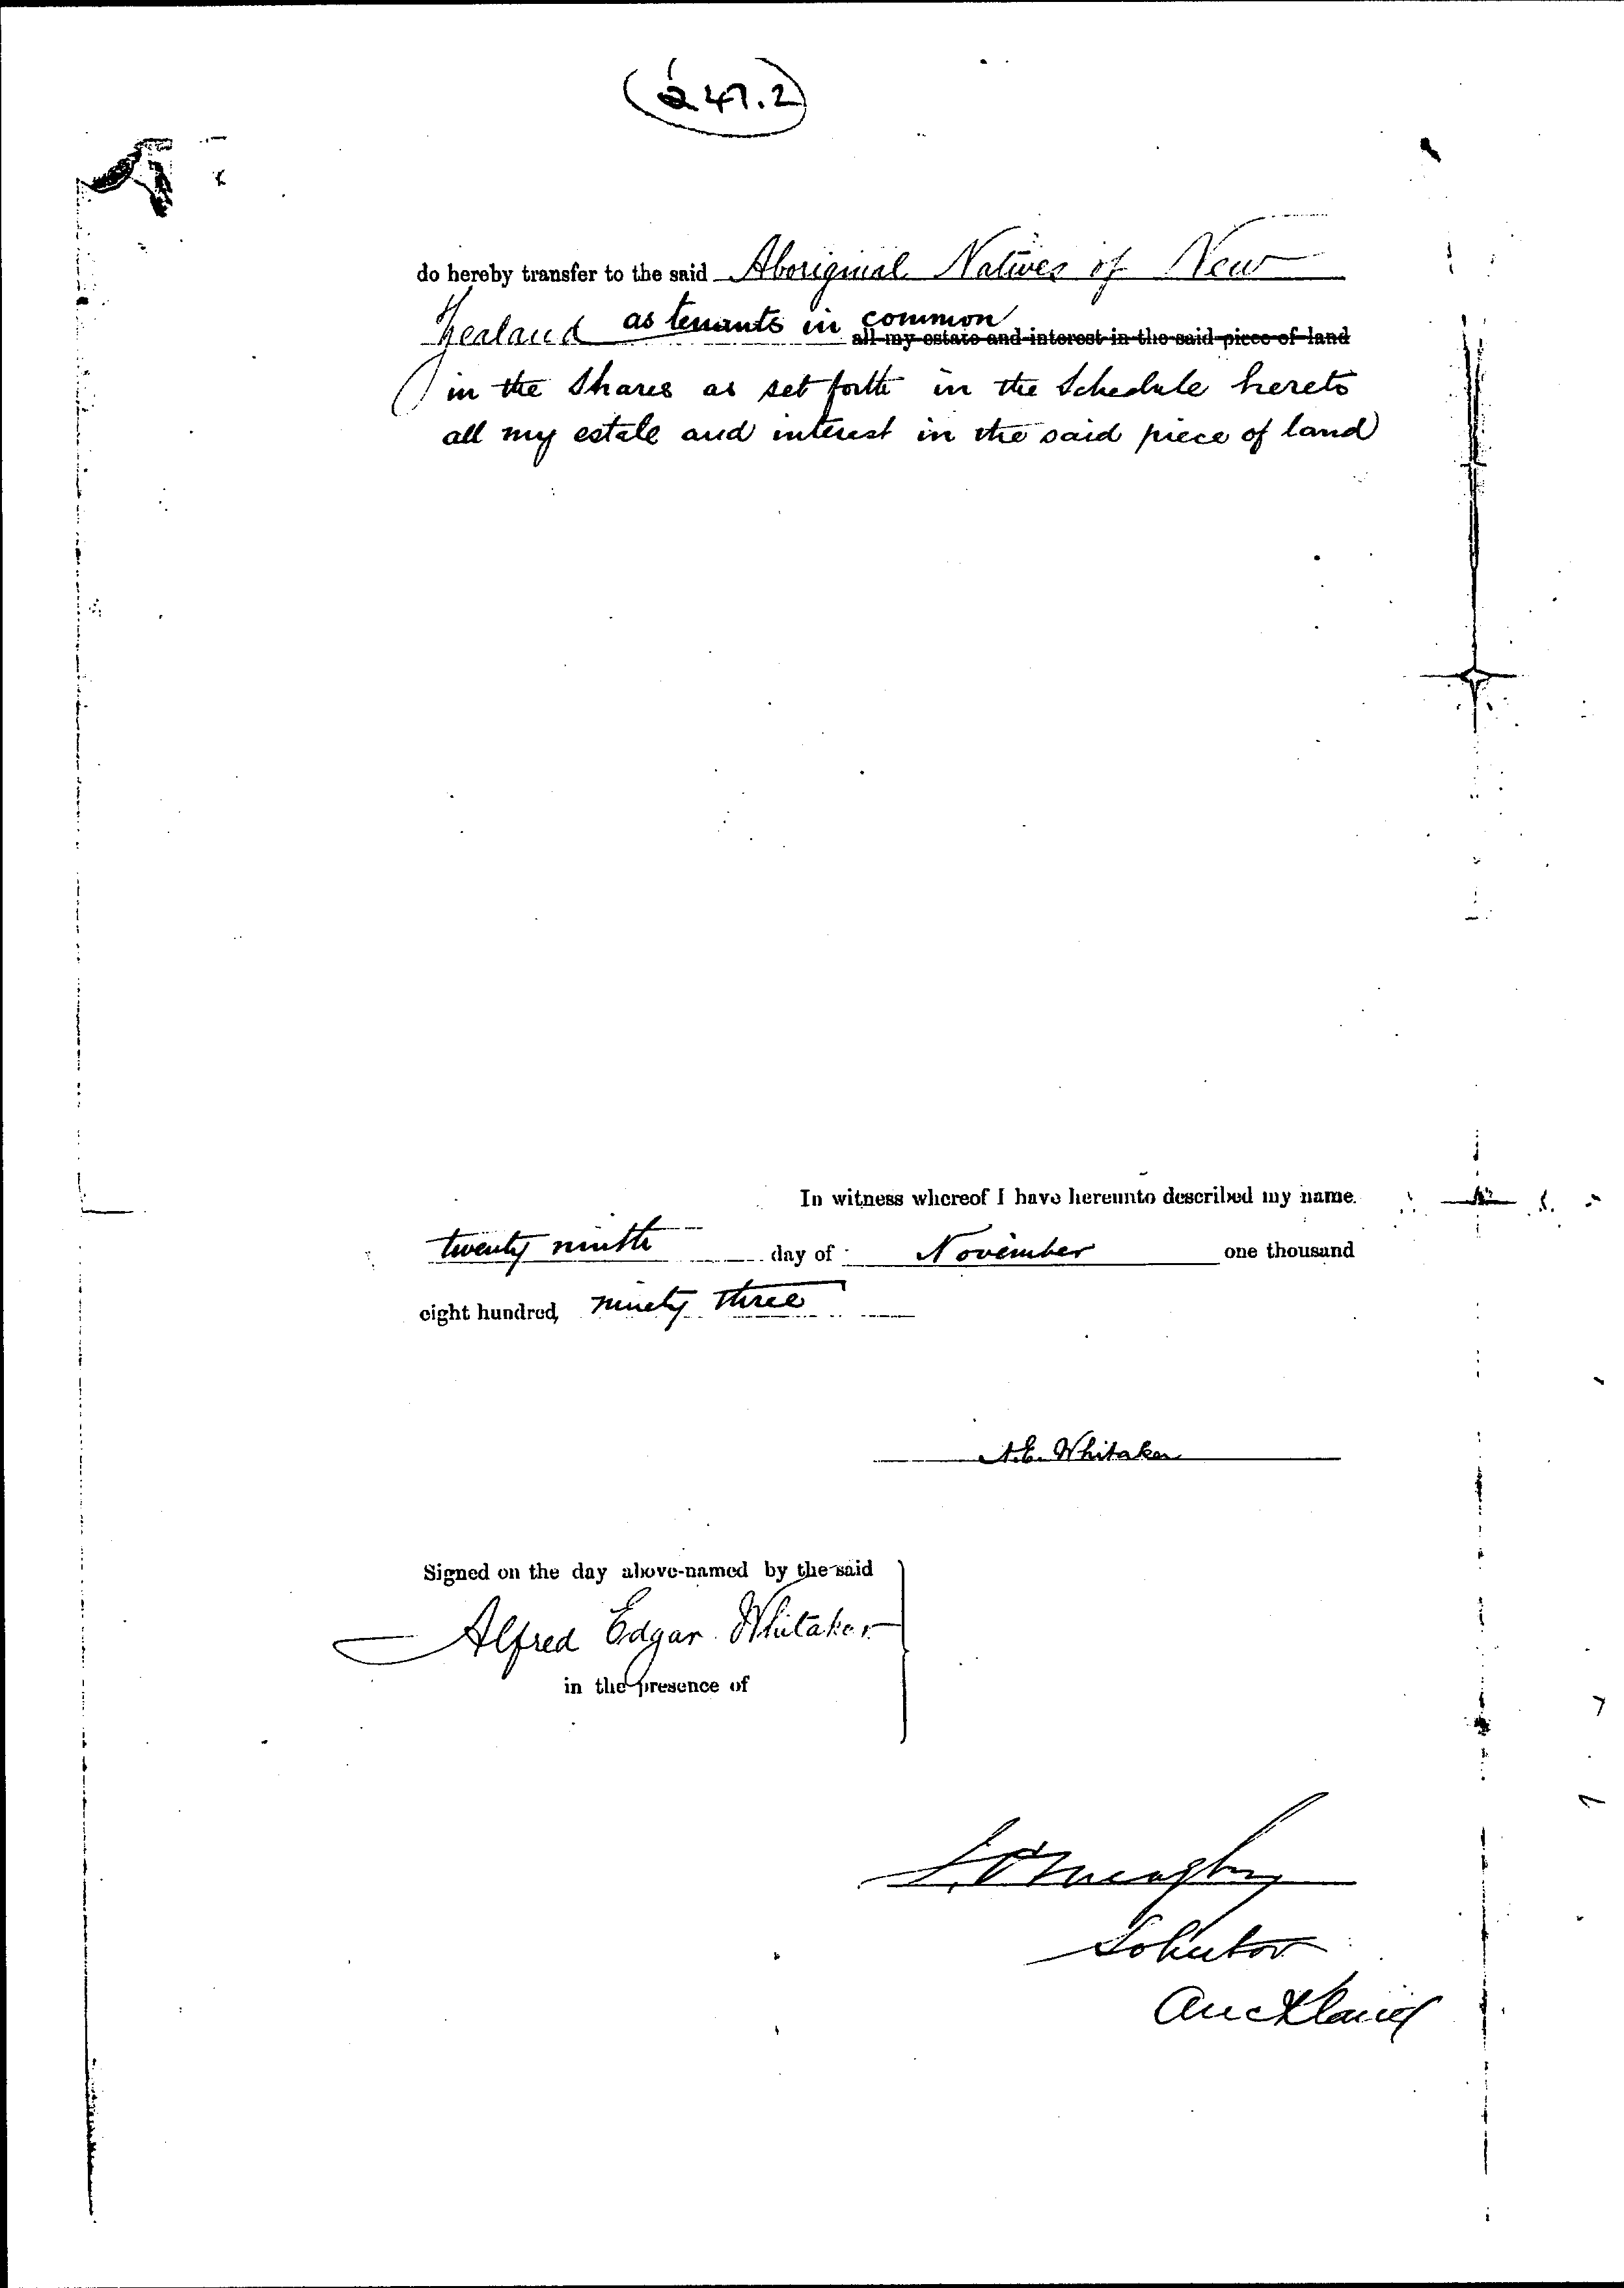 247.2
do hereby transfer to the said Aboriginal Natives of New
Zealand as tenants in common all my estate and interest in the said piece of land
in the Shares as set forth in the Schedule hereto
all my estate and interest in the said piece of land
In witness whereof I have hereunto described my name.
twenty ninth day of November one thousand
eight hundred, ninety three
A.E. Whitaker
Signed on the day above-named by the said
Alfred Edgar Whitaker
in the presence of
Solicitor
Auckland